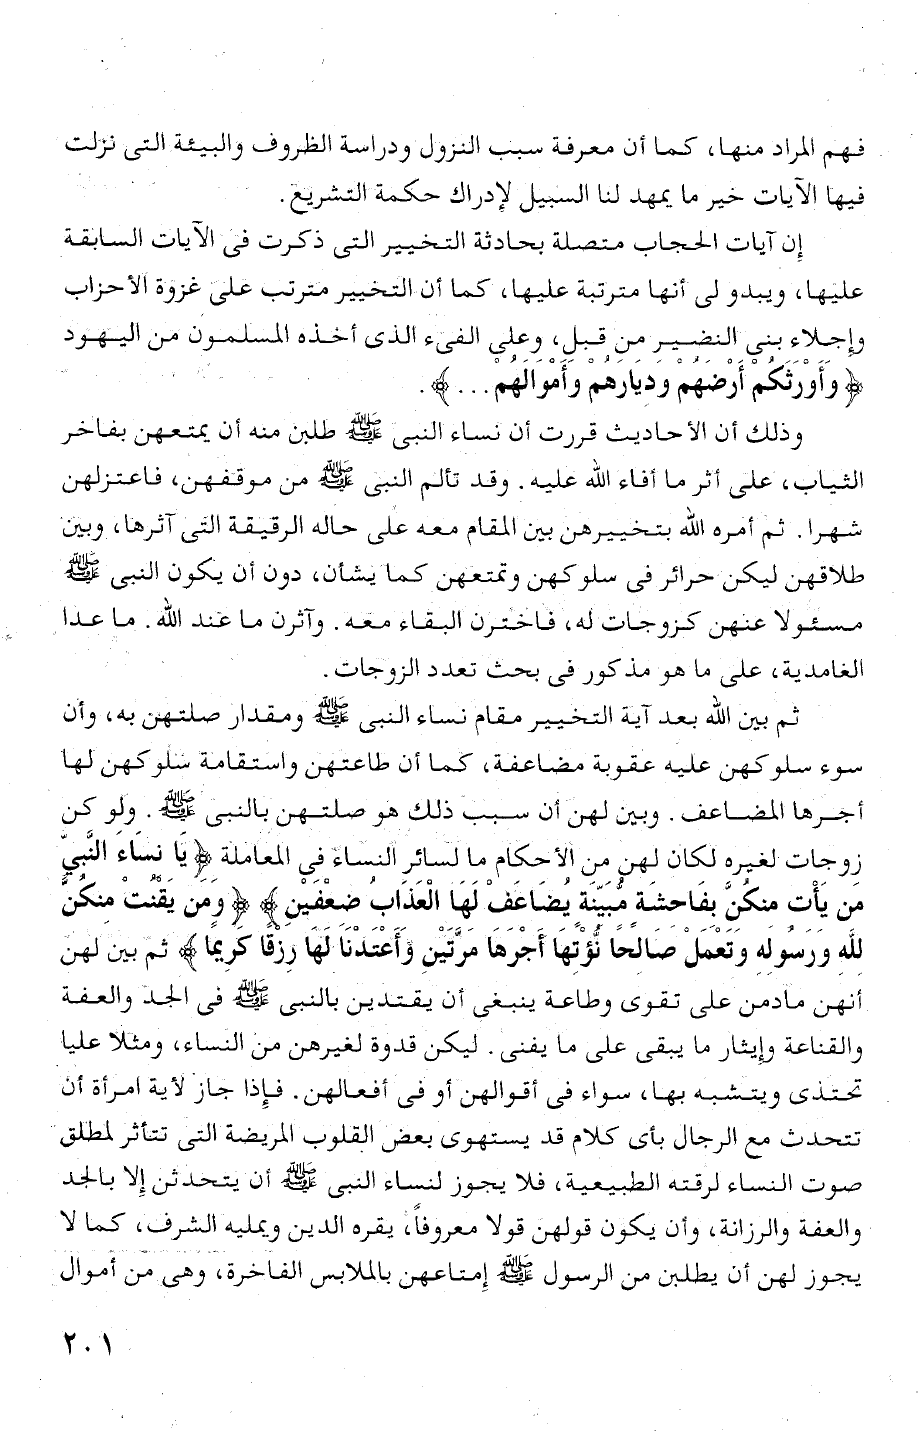 فهم المراد منها، كما أن معرفة سبب النزول ودراسة الظروف والبيئة التى نزلت
فيها الآيات خير ما يمهد لنا السبيل لإدراك حكمة التشريع.
إن آيات الحجاب متصلة بحادثة التخيير التى ذكرت فى الآيات السابقة
عليها، ويبدو لى أنها مترتبة عليها، كما أن التخيير مترتب على غزوة الأحزاب
وإجلاء بنى النضير من قبل، وعلى الفىء الذى أخذه المسلمون من اليهود
﴿وَأَوْرَثَكُمْ أَرْضَهُمْ وَدِيَارَهُمْ وَأَمْوَالَهُمْ...﴾.
وذلك أن الأحاديث قررت أن نساء النبى ﷺ طلبن منه أن يمتعهن بفاخر
الثياب، على أثر ما أفاء الله عليه. وقد تألم النبى ﷺ من موقفهن، فاعتزلهن
شهرا. ثم أمره الله بتخييرهن بين المقام معه على حاله الرقيقة التى آثرها، وبين
طلاقهن ليكن حرائر فى سلوكهن وتمتعهن كما يشأن، دون أن يكون النبى ﷺ
مسئولا عنهن كزوجات له، فاخترن البقاء معه. وآثرن ما عند الله. ما عدا
الغامدية، على ما هو مذكور فى بحث تعدد الزوجات.
ثم بين الله بعد آية التخيير مقام نساء النبى ﷺ ومقدار صلتهن به، وأن
سوء سلوكهن عليه عقوبة مضاعفة، كما أن طاعتهن واستقامة سلوكهن لها
أجرها المضاعف. وبين لهن أن سبب ذلك هو صلتهن بالنبى ﷺ. ولو كن
زوجات لغيره لكان لهن من الأحكام ما لسائر النساء فى المعاملة ﴿يَا نِسَاءَ النَّبِيِّ
مَن يَأْتِ مِنكُنَّ بِفَاحِشَةٍ مُّبَيِّنَةٍ يُضَاعَفْ لَهَا الْعَذَابُ ضِعْفَيْنِ﴾ ﴿وَمَن يَقْنُتْ مِنكُنَّ
لِلَّهِ وَرَسُولِهِ وَتَعْمَلْ صَالِحًا نُّؤْتِهَا أَجْرَهَا مَرَّتَيْنِ وَأَعْتَدْنَا لَهَا رِزْقًا كَرِيمًا﴾ ثم بين لهن
أنهن مادمن على تقوى وطاعة ينبغى أن يقتدين بالنبى ﷺ فى الجد والعفة
والقناعة وإيثار ما يبقى على ما يفنى. ليكن قدوة لغيرهن من النساء، ومثلا عليا
تحتذى ويتشبه بها، سواء فى أقوالهن أو فى أفعالهن. فإذا جاز لأية امرأة أن
تتحدث مع الرجال بأى كلام قد يستهوى بعض القلوب المريضة التى تتأثر لمطلق
صوت النساء لرقته الطبيعية، فلا يجوز لنساء النبى ﷺ أن يتحدثن إلا بالجد
والعفة والرزانة، وأن يكون قولهن قولا معروفاً، يقره الدين ويمليه الشرف، كما لا
يجوز لهن أن يطلبن من الرسول ﷺ إمتاعهن بالملابس الفاخرة، وهى من أموال
٢٠١